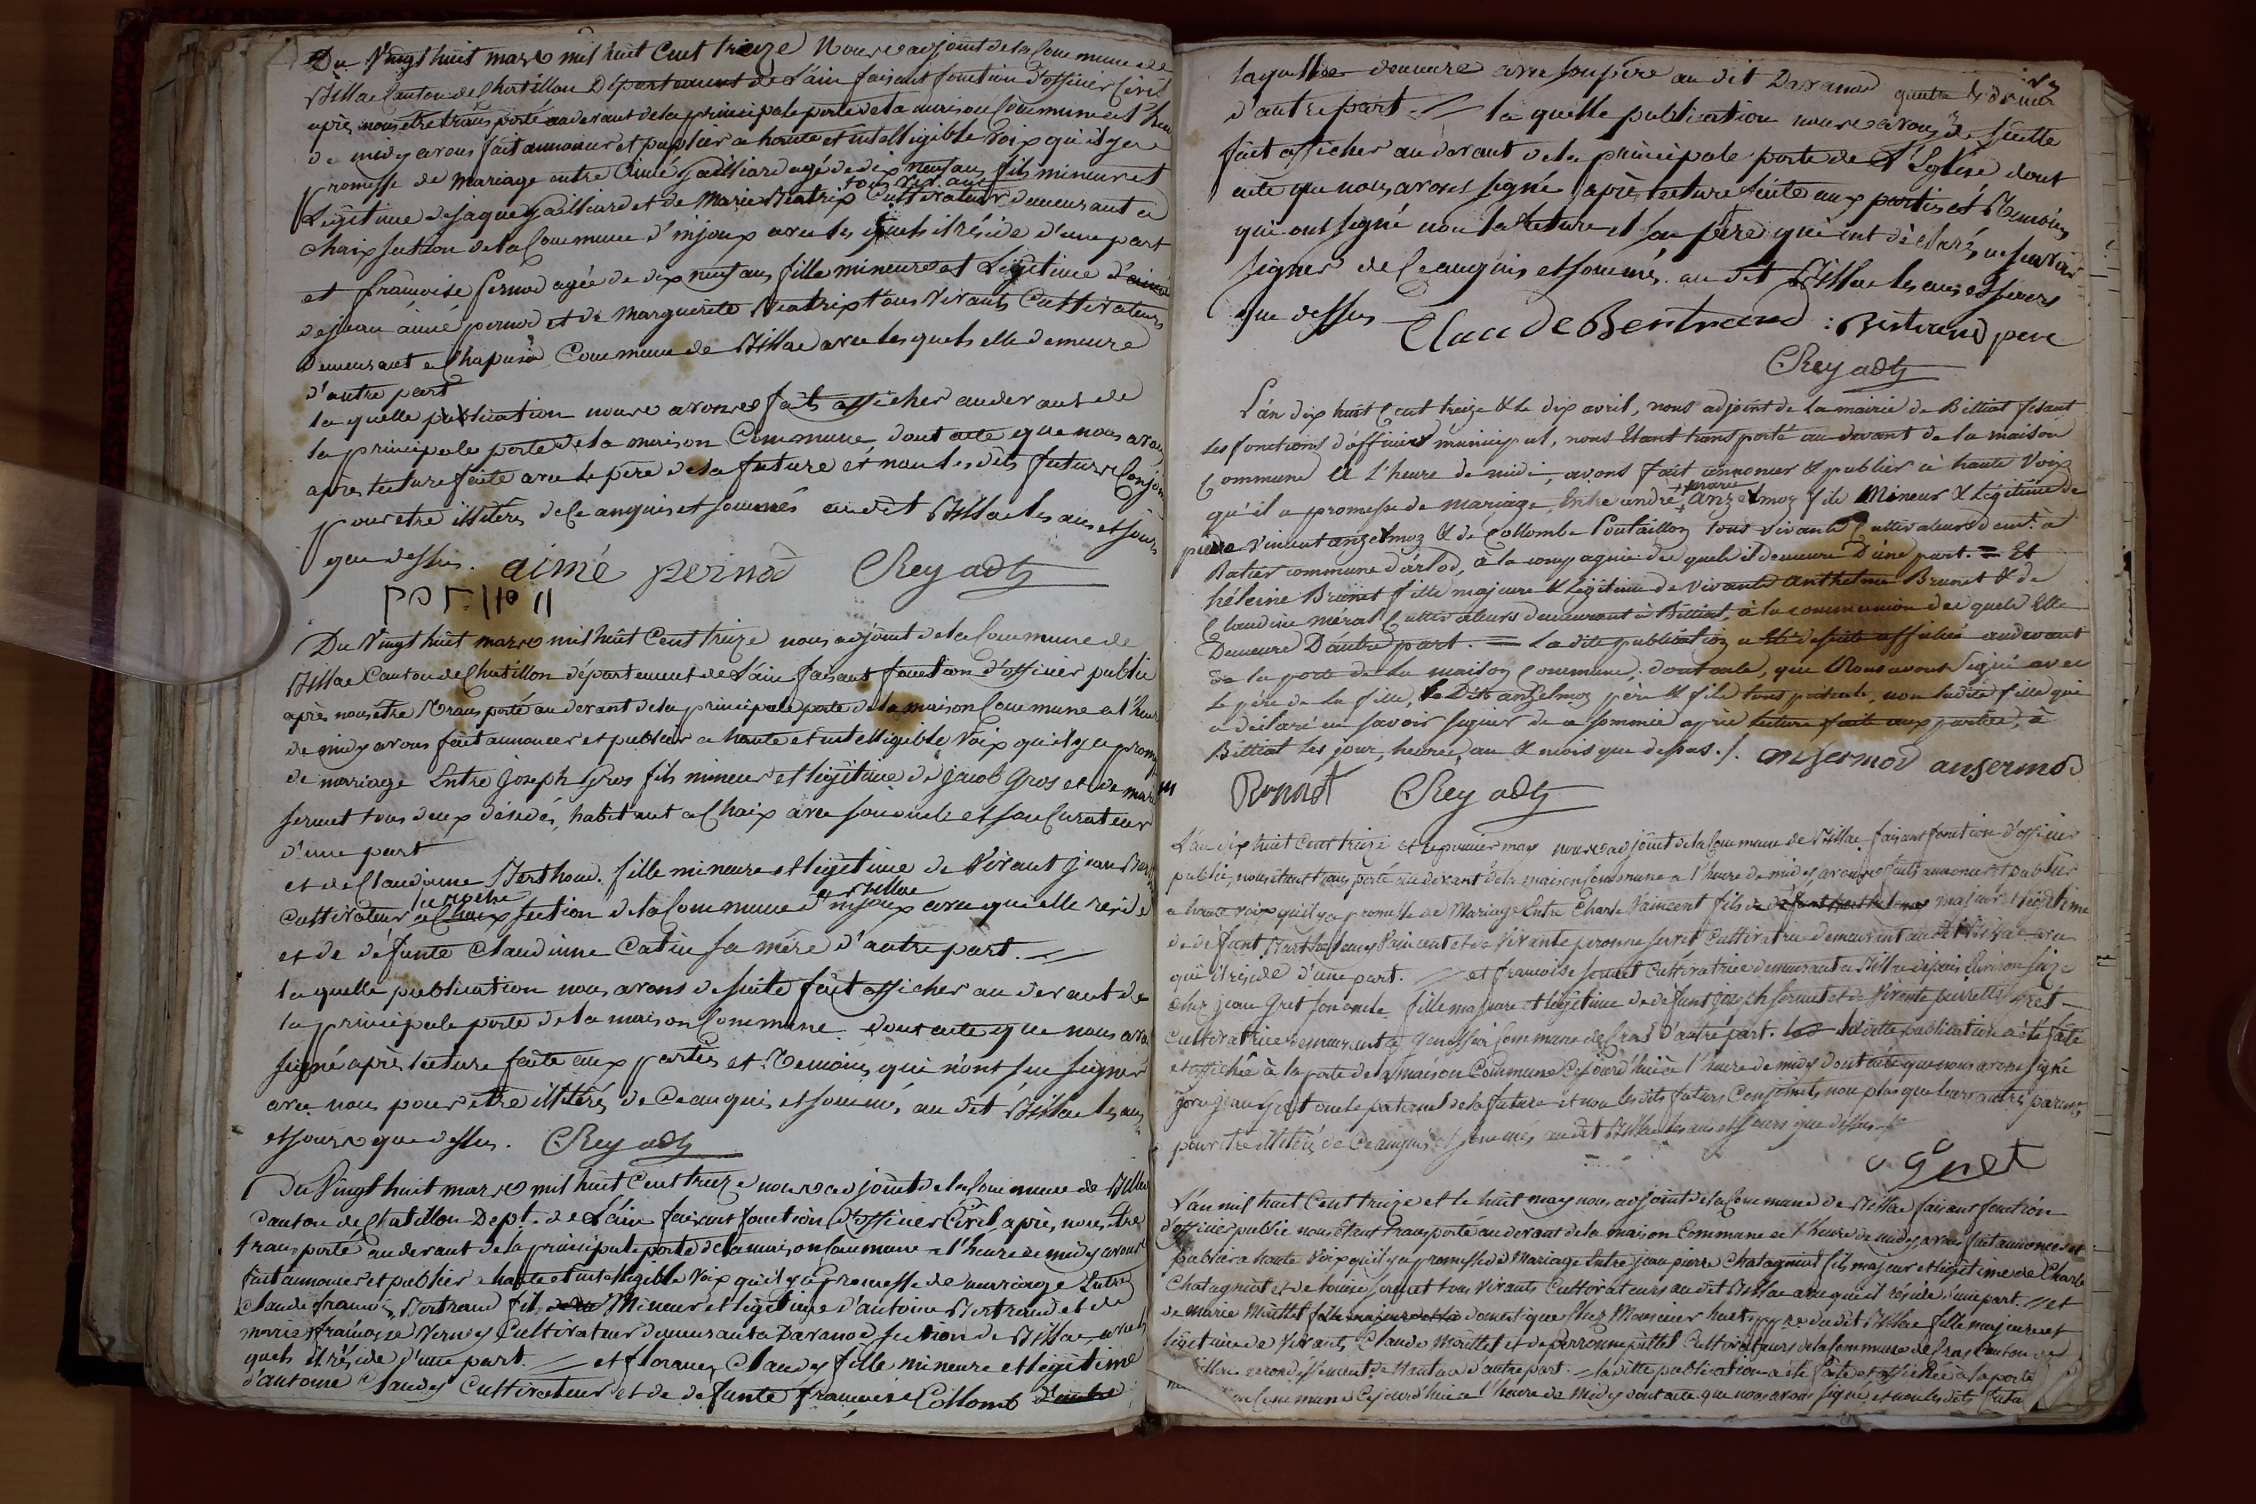 Du Vingt huit mars mil huit Cent treize Nous adjoint de la Commune de
Billiac Canton de Chatillon Département de L'ain faisant fonction d'officier Civil
après nous être transporté au devant de la principale porte de la maison Commune a l'heure
de midy avons fait annoncer et publier a haute et intelligible Voix qu'il y a
Promesse de Mariage entre Aimé Gailliard agé de dix neuf ans fils mineur et
tous Vivants
Légitime de Jaque Gailliard et de Marie Beatrix Cultivateur demeurant a
Chaix section de la Commune d'injoux avec les quels il réside d'une part
et francoise pernod agée de dix neuf ans fille mineure et Légitime
de jean aimé pernod et de Marguerite Beatrix tous Vivants Cultivateurs
Demeurant a Chapuis Commune de Billiac avec les quels elle demeure
d'autre part
la quelle publication nous avons fait afficher au devant de
la principale porte de la maison Commune dont acte que nous avons
après lecture faite avec le père de la future et non les dits futurs Conjoints
Pour être illitérés de Ce anquis et sommés au dit Billiac les ans et jours
que dessus. aimé pernod CReydadt
Du Vingt huit mars mil huit Cent treize nous adjoint de la Commune de
Billiac Canton de Chatillon département de L'ain faisant fonction d'officier public
après nous être Transporté au devant de la principale porte de la maison Commune a l'heure
de midy avons fait annoncer et publier a haute et intelligible Voix qu'il y a promesse
de mariage Entre Joseph Gros fils mineur et légitime de Jacob Gros et de marie
sermet tous deux décédés, habitant a Chaix avec son oncle et son Curateur
d'une part
et de Claudinne Berthoud. fille mineure et légitime de Vivant Jean
Cultivateur a Chaix section de la Commune d'injoux avec que elle reside
et de défunte Claudinne Catin sa mère d'autre part.
la quelle publication nous avons de suite fait afficher au devant de
la principale porte de la maison Commune dont acte que nous avons
signé après lecture faite aux parties et Temoins qui n'ont su signer
avec nous pour être illitérés de Ce anquis et sommé, au dit Billiac les ans
et jours que dessus. CReydadt
Du Vingt huit mars mil huit Cent treize nous adjoint de la Commune de Billiac
Canton de Chatillon Dept. de L'ain faisant fonction d'officier Civil, après nous être
transporté au devant de la principale porte de la maison Commune a l'heure de midy avons
fait annoncer et publier a haute et intelligible Voix qu'il y a Promesse de mariage Entre
Claude francois Bertrand fils Mineur et légitime d'antoine Bertrand et de
marie francoise Verney Cultivateur demeurant a Davanod section de Billiac avec les
quels il réside d'une part. et florance Claudy fille mineure et légitime
d'antoine Claudy Cultivateur et de defunte francoise Collomb d'autre
laquelle demeure avec son père au dit Davanod
d'autre part. la quelle publication nous avons de suitte
fait afficher au devant de la principale porte de L'Eglise dont
acte que nous avons signé après lecture faite aux parties et Temoins
qui ont signé non la future et son père qui ont déclaré ne savoir
signer de Ce anquis et sommés. au dit Billiac les ans et jours
que dessus Claude Bertrand : Bertrand pere
CReydadt
L'an dix huit Cent treize & le dix avril, nous adjoint de la mairie de Billiat fesant
les fonctions d'officier municipal, nous étant transporté au devant de la maison
Commune à l'heure de midi, avons fait annoncer & publier à haute Voix
qu'il a promesse de mariage, Entre andré marie anzelmoz fils Mineur & Légitime de
pierre Vincent anzelmoz & de Collombe Poutaillon tous vivants Cultivateurs demt. à
Ratier commune d'arlod, à la compagnie de quels il demeure D'une part. = Et
héleine Brunet fille majeure & Légitime de Vivants Anthelme Brunet & de
Claudine Méral Cultivateurs demeurant à Billiat, à la communion des quels Elle
Demeure D'autre part. = La dite publication a été de suite affichée au devant
de la porte de la maison Commune; dont acte, que Nous avons Signé avec
Le père de la fille, Le Dits anzelmoz père & fils tous présents, non ladite fille qui
a déclaré ne savoir signer de a sommée après lecture faite aux parties, à
Billiat les jour, heure, an & mois que dessus./. anzermod ansermod
Brunet CReydadt
L'an dix huit Cent treize et le premier may nous adjoint de la Commune de Billiac faisant fonction d'officier
public, nous étant transporté au devant de la maison Commune a l'heure de midy, avons fait annoncer et publier
a haute voix qu'il y a promesse de Mariage Entre Charle Vaincent fils majeur et légitime
de defunt Barthelemy Vaincent et de Vivante peronne Cultivatrice demeurant au dit Billiac avec
qui il réside d'une part. et francoise sermet Cultivatrice demeurant a Billiac depuis Environ seize
chez jean Gret son oncle fille majeure et légitime de défunt joseph sermet et de Vivante perrette Gret
Cultivatrice demeurant a Commune de Cras D'autre part. la ditte publication a été faite
et affichée à la porte de la maison Commune Cejourd'hui à l'heure de midy dont acte que nous avons signé
avec jean Gret oncle paternel de la future et non les dits futurs Conjoints non plus que leurs autres parents
pour être illitérés de Ce anquis et sommés au dit Billiac les ans et jours que dessus
Gret
L'an mil huit Cent treize et le huit may nous adjoint de la Commune de Billiac faisant fonction
d'officier public nous étant transporté au devant de la maison Commune a l'heure de midy avons fait annoncer et
publier a haute Voix qu'il y a promesse de Mariage Entre jean pierre Chatagniat fils majeur et légitime de Charle
Chatagniat et de louise tous Vivants Cultivateurs au dit Billiac avec qui il réside d'une part. et
de marie Maillet domestique Chez Monsieur du dit Billiac fille majeure et
légitime de Vivants Claude Maillet et de perronne Cultivateurs de la Commune de Cras Canton de
arrondissement de Nantua d'autre part. la ditte publication a été faite et affichée à la porte
Commune Cejourd'hui a l'heure de Midy dont acte que nous avons signé et non les dits futurs